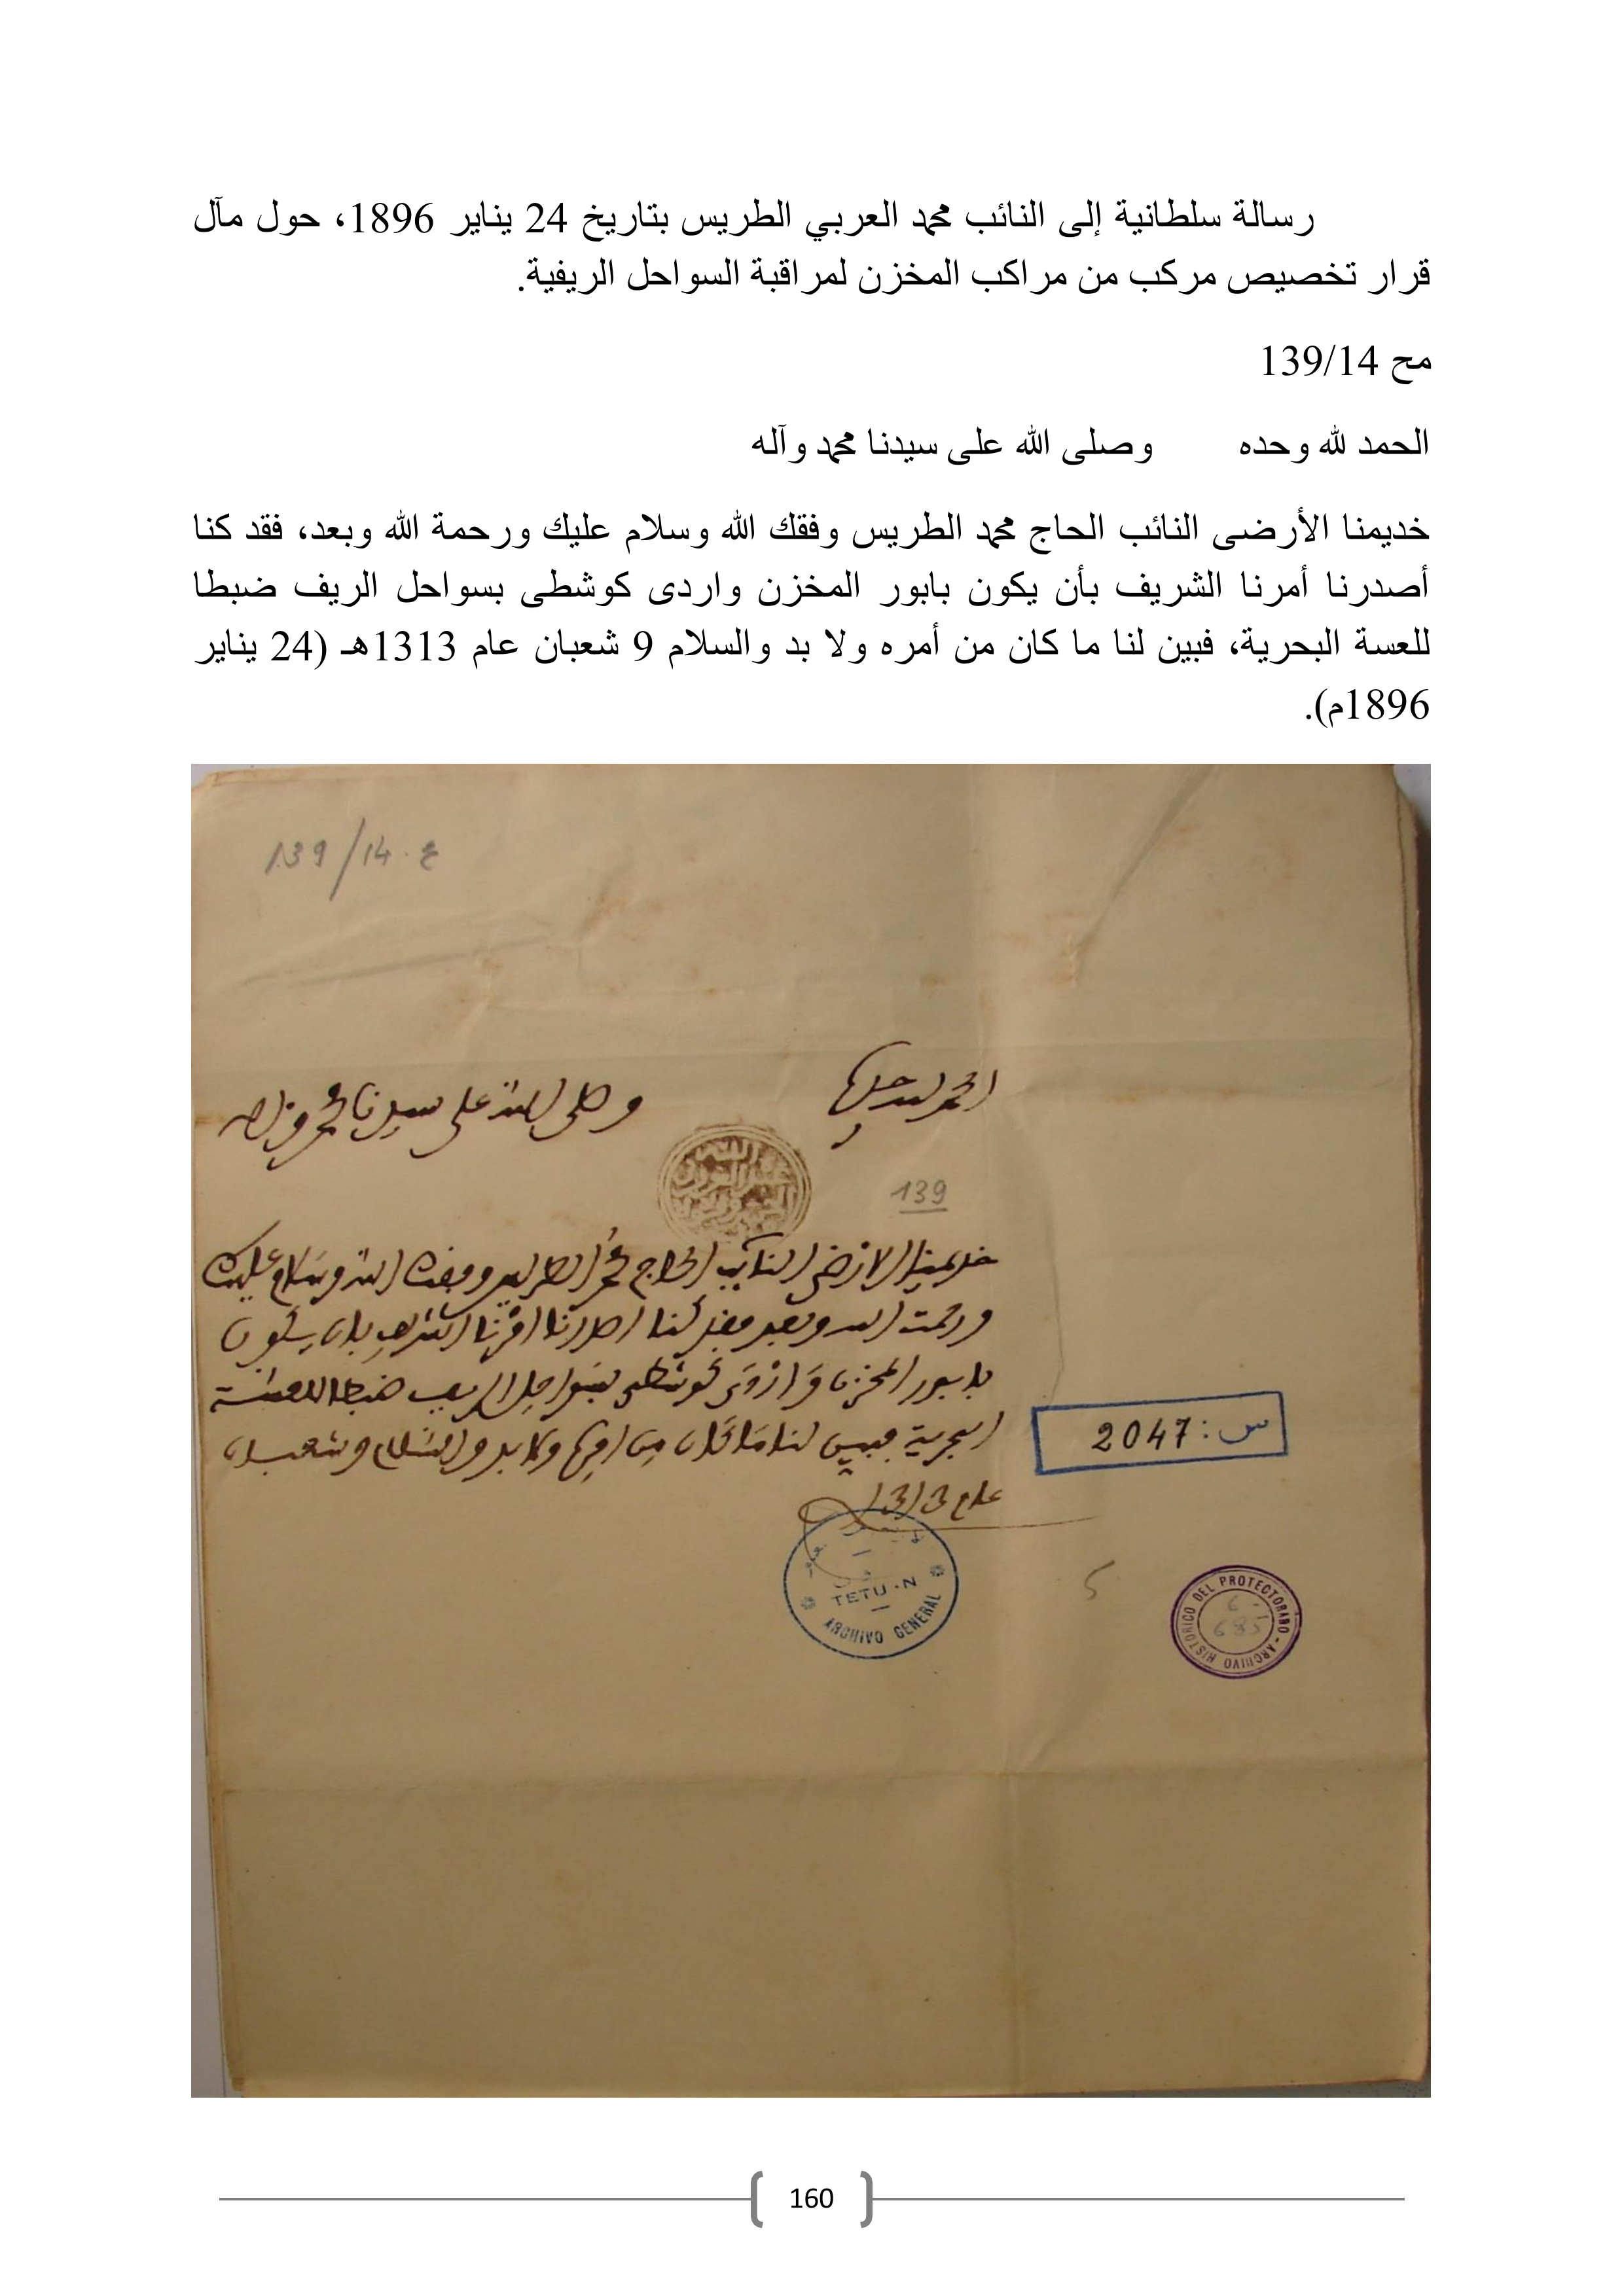 رسالة سلطانية إلى النائب محمد العربي الطريس بتاريخ 24 يناير 1896، حول مآل
قرار تخصيص مركب من مراكب المخزن لمراقبة السواحل الريفية.
مح 139/14
الحمد لله وحده وصلى الله على سيدنا محمد وآله
خديمنا الأرضى النائب الحاج محمد الطريس وفقك الله وسلام عليك ورحمة الله وبعد، فقد كنا
أصدرنا أمرنا الشريف بأن يكون بابور المخزن واردى كوشطى بسواحل الريف ضبطا
للعسة البحرية، فبين لنا ما كان من أمره ولا بد والسلام 9 شعبان عام 1313هـ (24 يناير
1896م).
139/14 ع
الحمد لله وحده وصلى الله على سيدنا محمد وءاله
139
خديمنا الارضى النائب الحاج محمد الطريس وفقك الله وسلام عليك
ورحمت الله وبعد فقد كنا اصدرنا امرنا الشريف بان يكون
بابور المخزن واردى كوشطى بسواحل الريف ضبطا للعسة
البحرية فبين لنا ما كان من امره ولا بد والسلام 9 شعبان
عام 1313
س: 2047
TETU·N
ARCHIVO GENERAL
5
ARCHIVO HISTORICO DEL PROTECTORADO
685
160